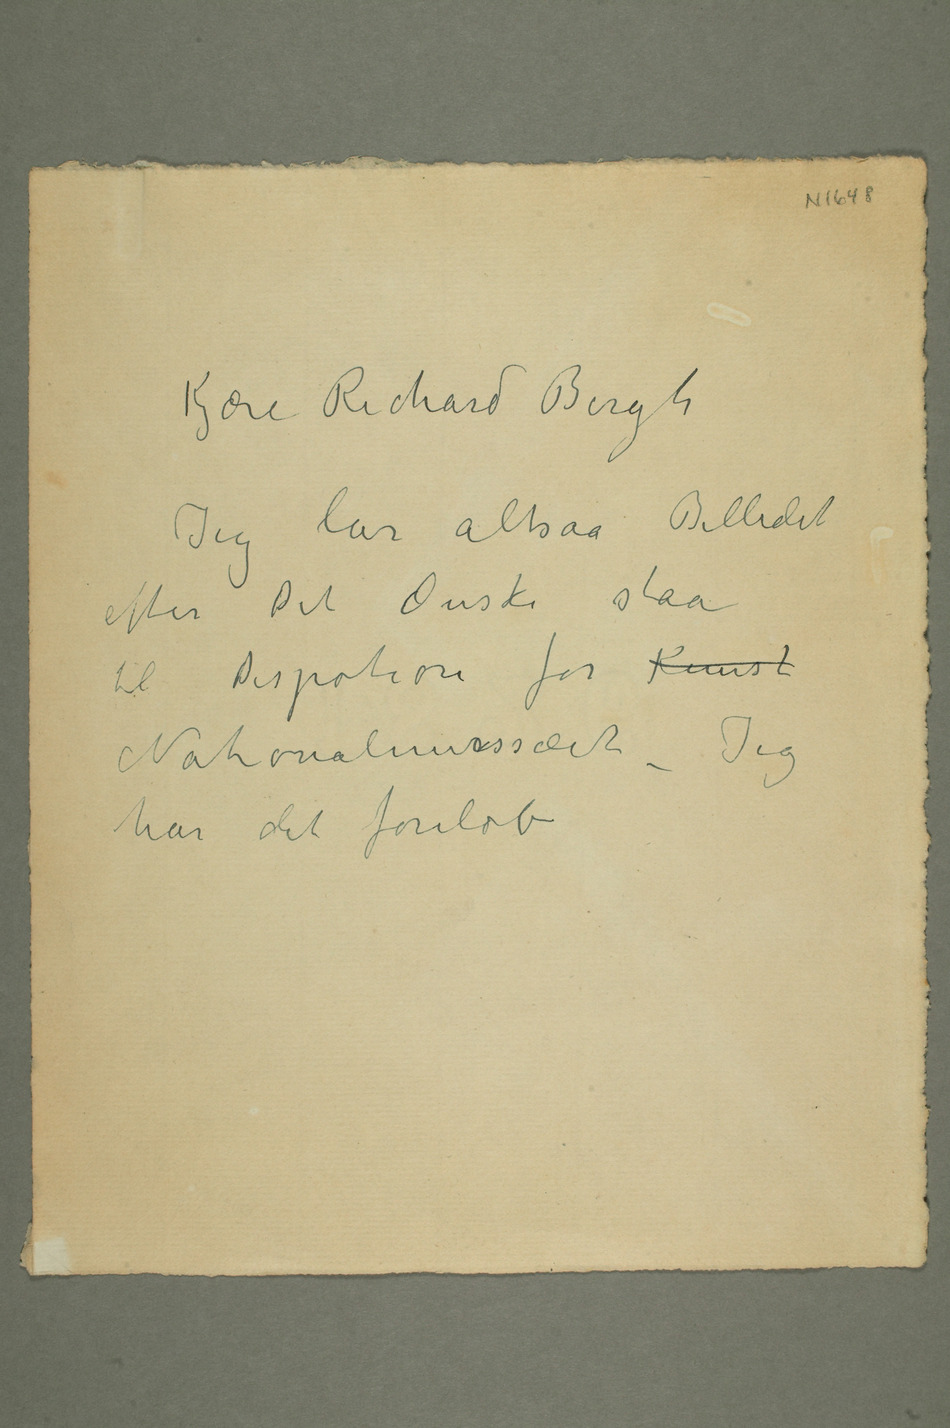 N1648
Kjære Richard Bergh
Jeg lar altsaa Billedet
efter Dit Ønske staa
til Dispotion for Kunst
Nationalmusæet _ Jeg
har det foreløb